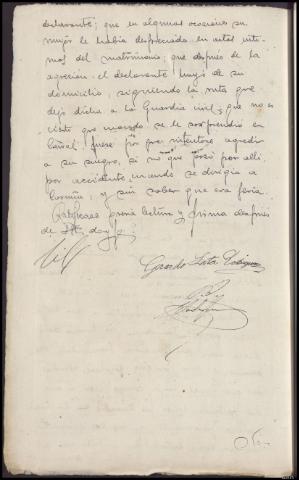 declarante; que en algunas ocasiones su
mujer le habia despreciado en actos inti-
mos del matrimonio; que despues de la
agresion el declarante huyó de su
domicilio siguiendo la ruta que
dejó dicha a la Guardia civil; que no es
cierto que cuando se le sorprendió en
fuese por que intentara agredir
a su suegro, si no que pasó por alli
por accidente cuando se dirigia a
Coruña, y sin saber que era feria.
Ratificase previa lectura y firma despues
de S.S. doy fe
Gerardo